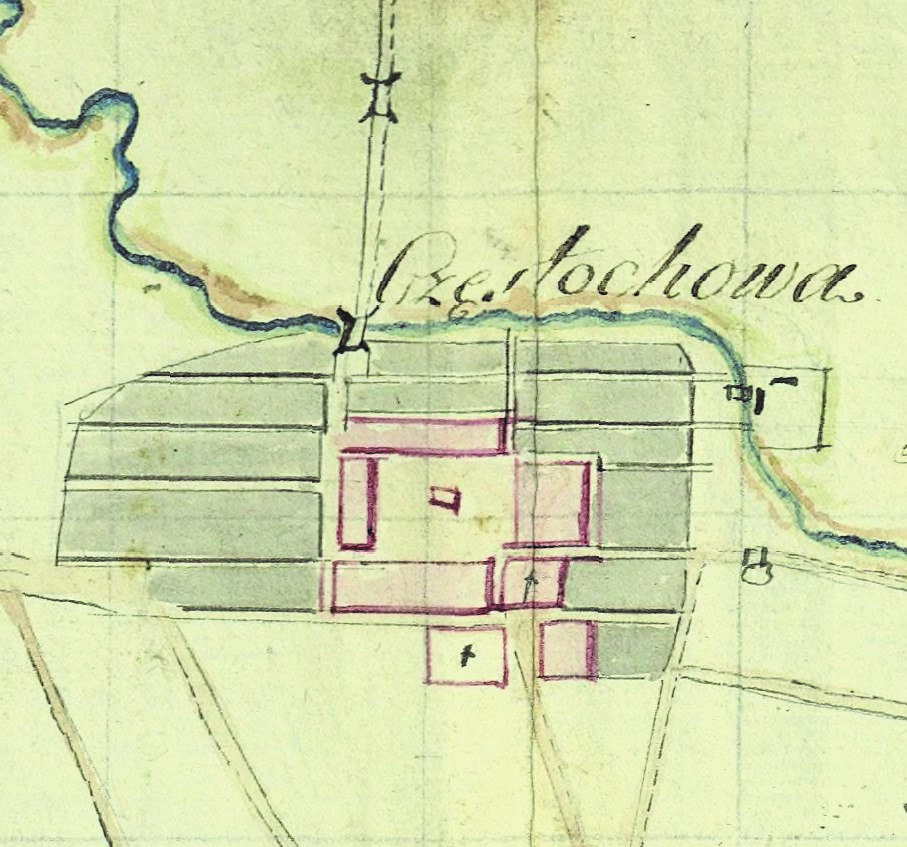 Częstochowa